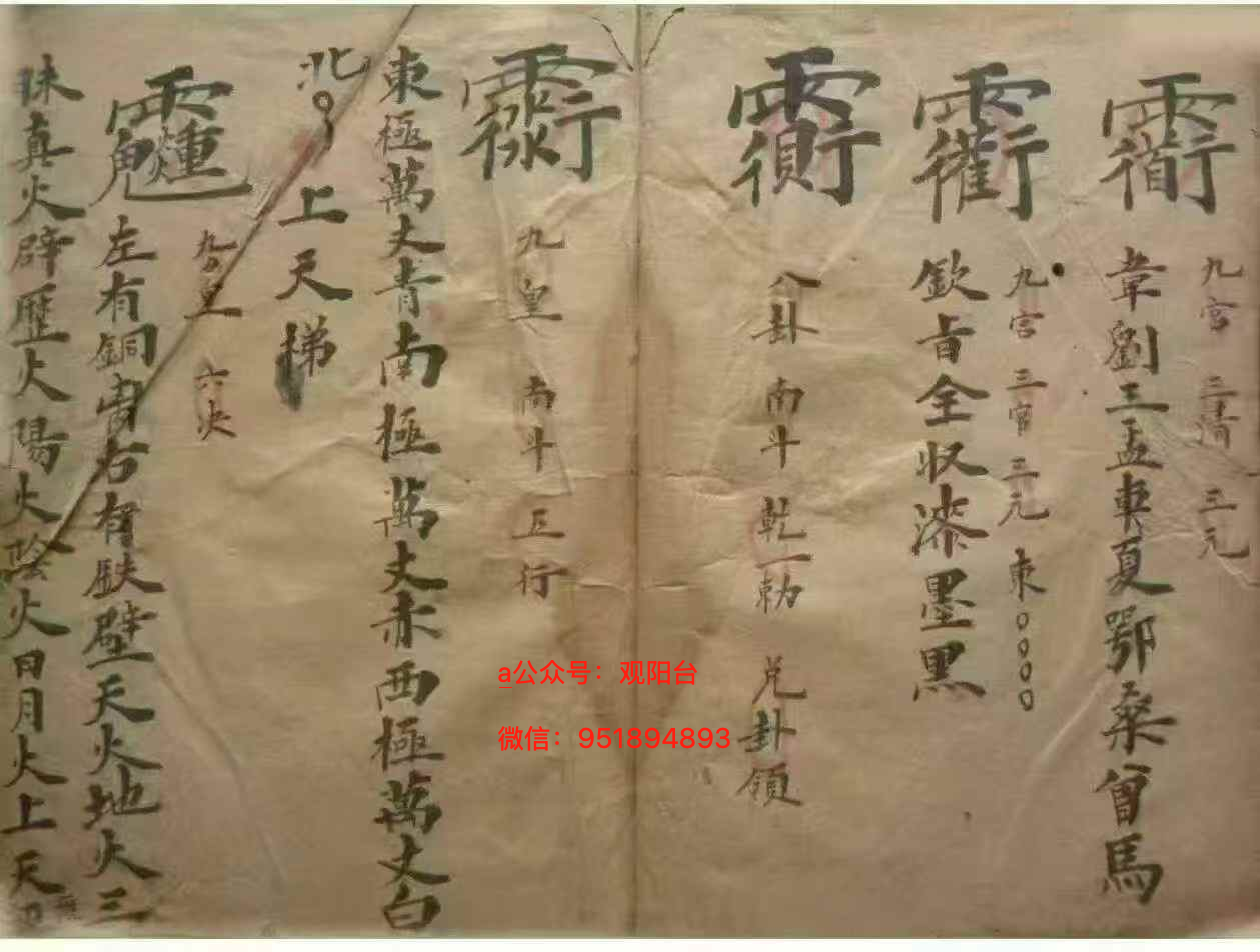 九宮 三清 三元
韋劉王孟車夏鄂桑曾馬
九宮 三官 三元 東○○○○
欽旨全収漆墨黑
八卦 南斗 乾一勅 兌卦領
九皇 南斗 五行
東極萬丈青南極萬丈赤西極萬丈白
北○○上天梯
九皇 六
左有銅 右有鉄壁天火地火三
昧真火辟歷火陽火陰火日月火上天
a公众号：观阳台
微信：951894893